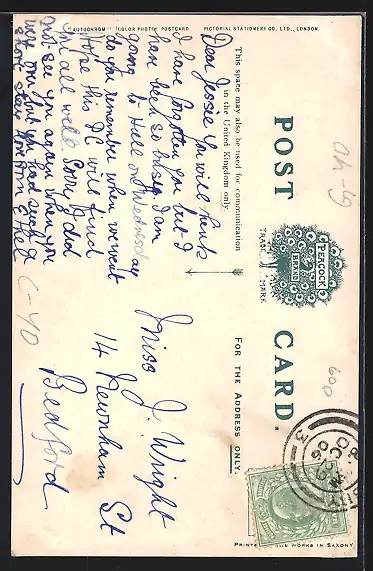 "AUTOCHROM" (COLOR PHOTO) POSTCARD. PICTORIAL STATIONERY CO., LTD., LONDON
POST CARD.
PEACOCK
BRAND
TRADE MARK
This space may also be used for communication
in the United Kingdom only.
FOR THE ADDRESS ONLY.
Dear Jessie You will think
I have forgotten you but I
have been so busy. I am
going to Hull on Wednesday
do you remember when we went
Hope this P.C will find
you all well. Sorry I did
not see you again when you
were over but you had such
a short stay love from Ethel
Miss J. Wright
14 Newnham St
Bedford
C-40
600
PRINTED AT THE WORKS IN SAXONY